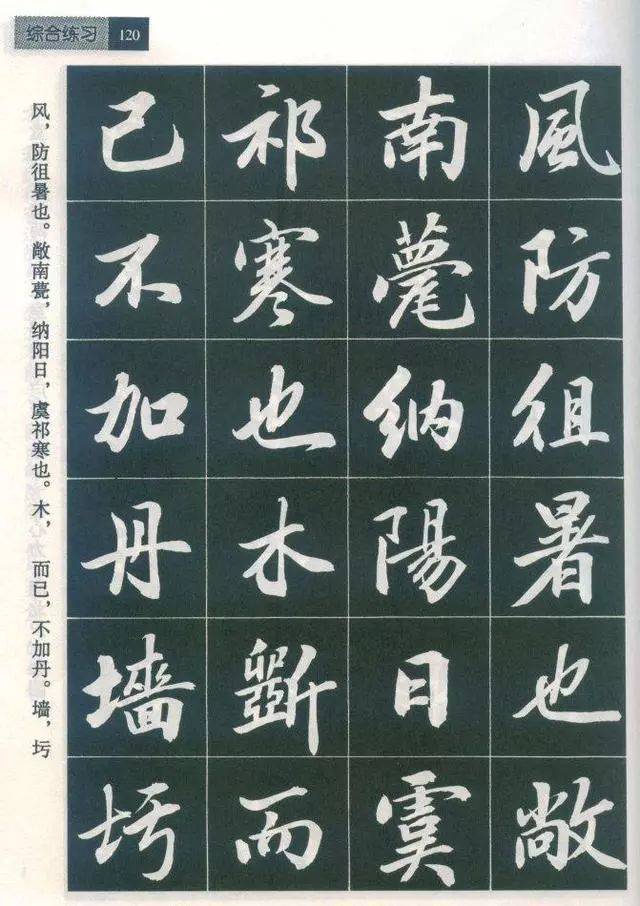 综合练习 120
風防徂暑也敞
南甍納陽日虞
祁寒也木斲而
已不加丹墙圬
风，防徂暑也。敞南甍，纳阳日，虞祁寒也。木， 而已，不加丹。墙，圬